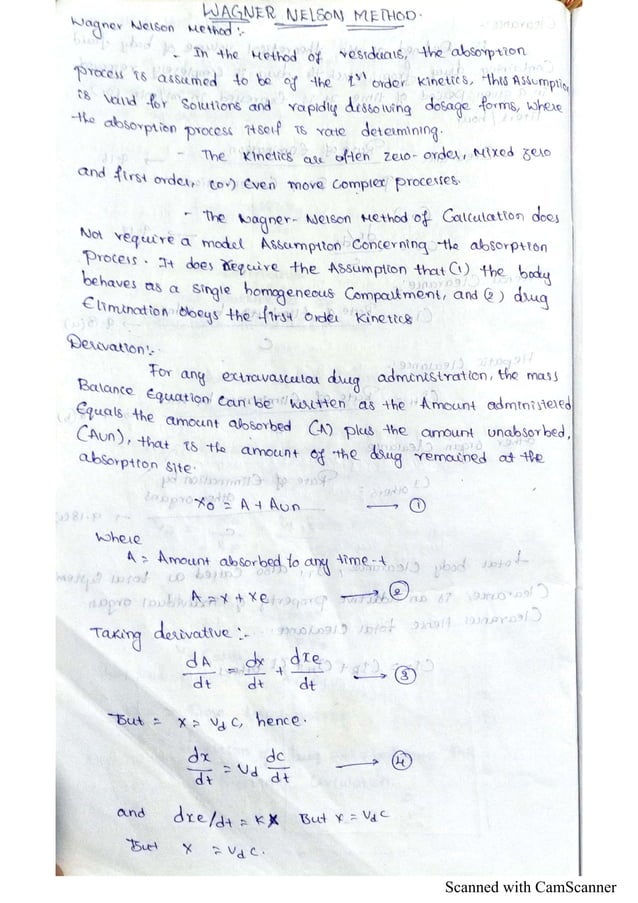 WAGNER NELSON METHOD.
Wagner Nelson Method:-
- In the Method of residuals, the absorption
process is assumed to be of the 1st order kinetics, this Assumption
is valid for solutions and rapidly dissolving dosage forms, where
the absorption process itself is rate determining.
- The kinetics are often zero-order, Mixed zero
and first order, (or) Even more complex processes.
- The Wagner-Nelson Method of Calculation does
Not require a model Assumption Concerning the absorption
Process. It does require the Assumption that (1) the body
behaves as a single homogeneous Compartment, and (2) drug
Elimination obeys the first order kinetics
Derivation:-
For any extravascular drug administration, the mass
Balance Equation can be written as the Amount administered
Equals the amount absorbed (A) plus the amount unabsorbed,
(Aun), that is the amount of the drug remained at the
absorption site.
X0 = A + Aun → ①
Where
A = Amount absorbed to any time-t
A = x + xe → ②
Taking derivative :-
dA/dt = dx/dt + dxe/dt → ③
But = x = Vd C, hence.
dx/dt = Vd dc/dt → ④
and dxe/dt = KX But x = Vd C
But x = Vd C.
Scanned with CamScanner